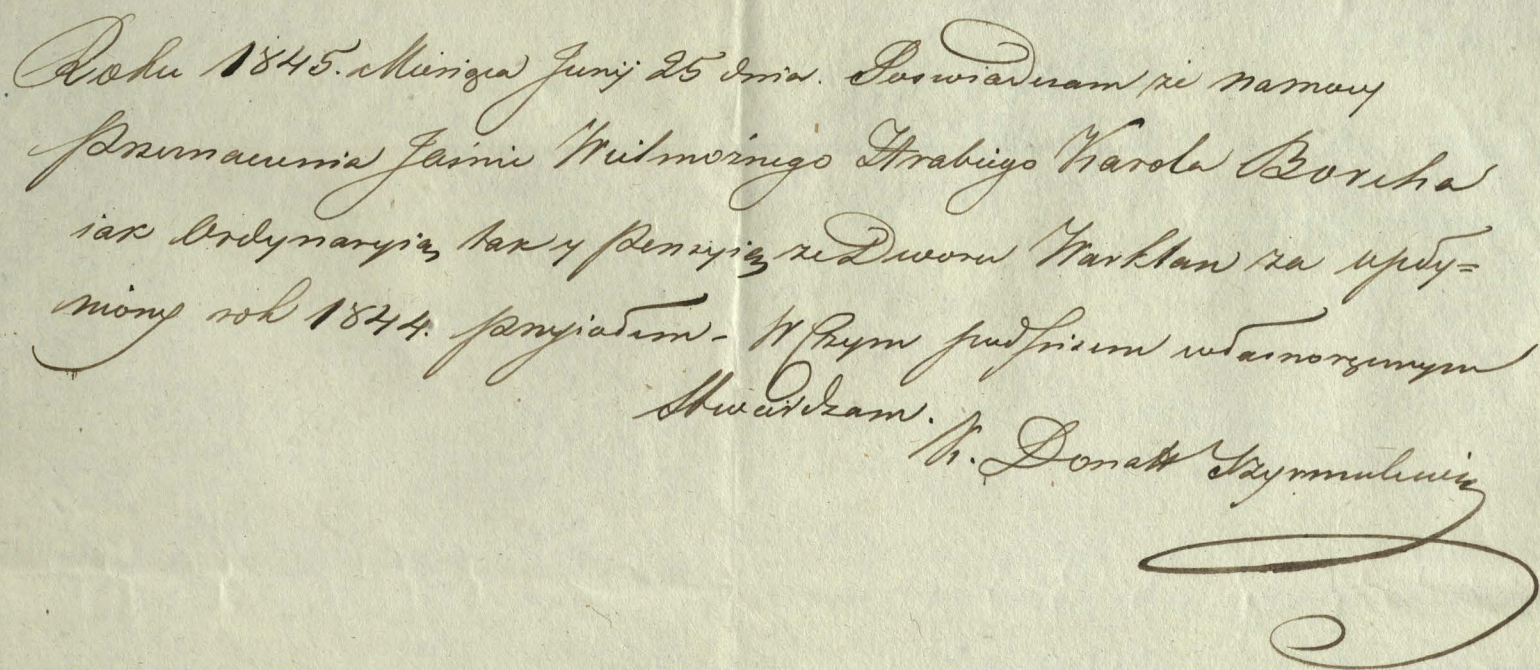 Roku 1845. Miesiąca Junij 25 dnia. Poswiadczam że na mocy
Przeznaczenia Jaśnie Wielmożnego Hrabiego Karola Borcha
iak Ordynaryią tak y Pensyią ze Dworu Warklan za upły=
niony rok 1844. przyiąłem - W Czym podpisem własnoręcznym
Stwierdzam.
X. Donatt Szyrmulewicz